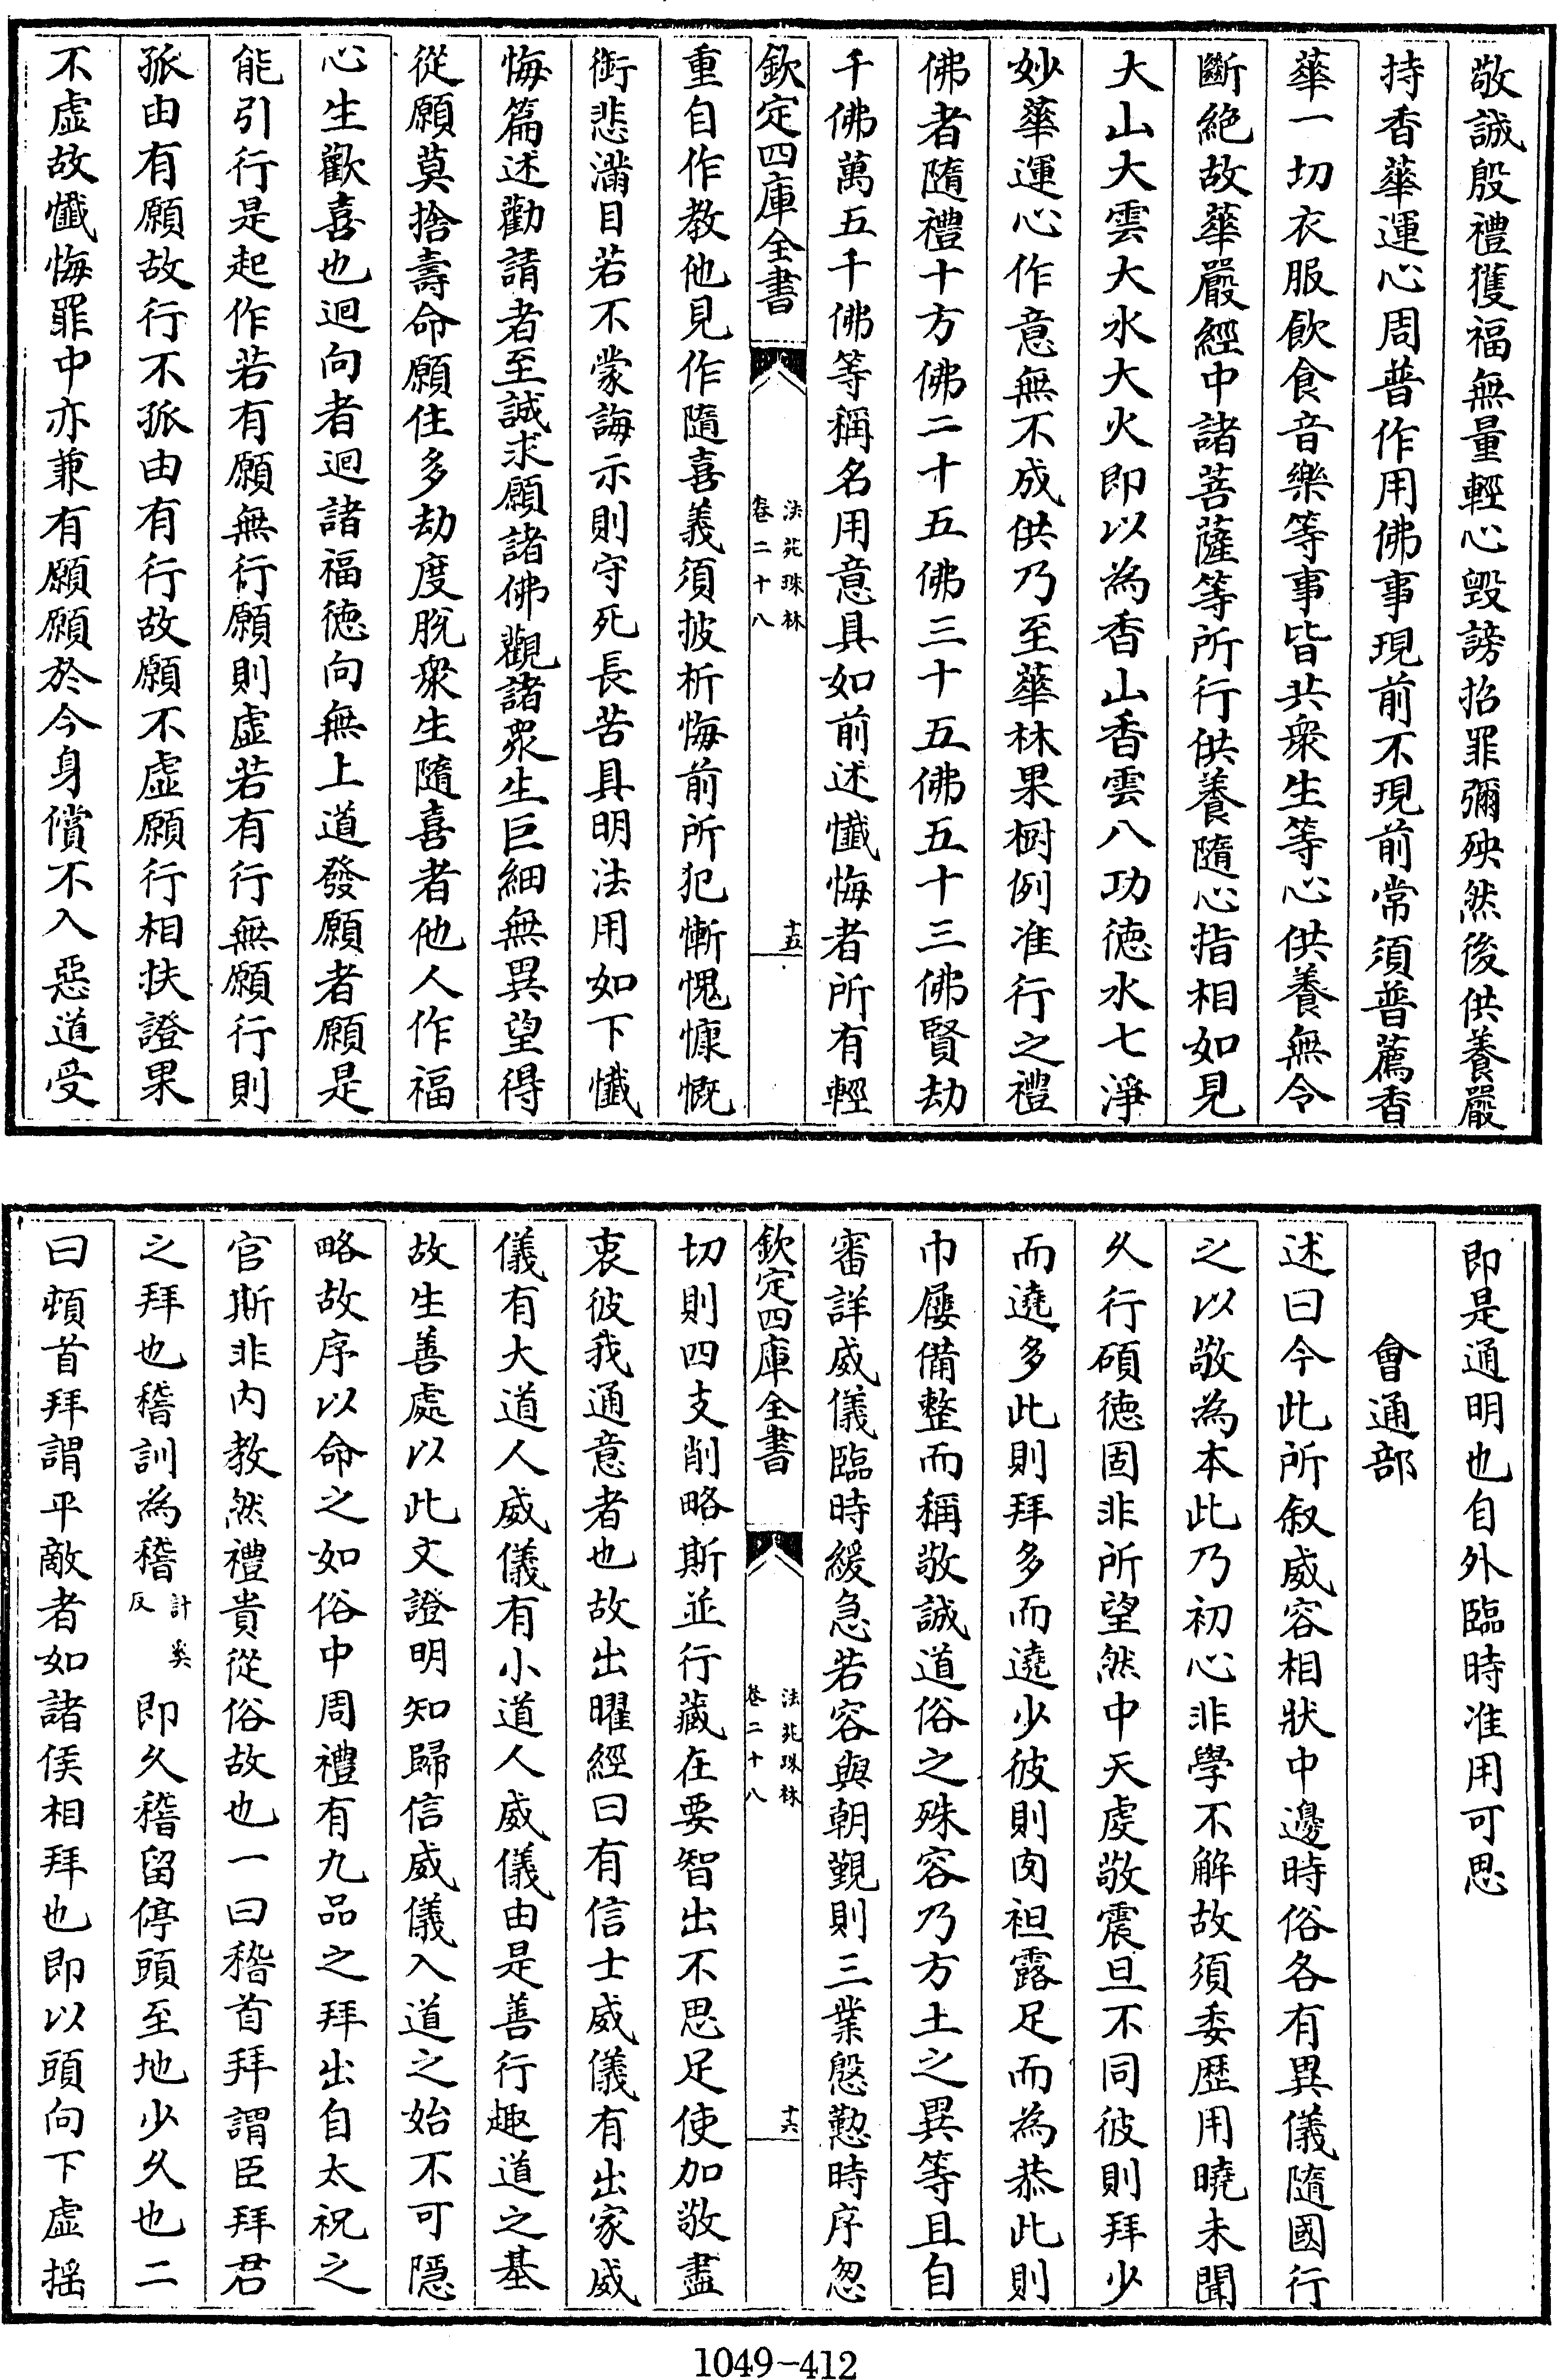 敬誠殷禮獲福無量輕心毀謗招罪彌殃然後供養嚴
持香華運心周普作用佛事現前不現前常須普薦香
華一切衣服飲食音樂等事皆共衆生等心供養無令
斷絶故華嚴經中諸菩薩等所行供養隨心指相如見
大山大雲大水大火即以為香山香雲八功徳水七淨
妙華運心作意無不成供乃至華林果樹例准行之禮
佛者隨禮十方佛二十五佛三十五佛五十三佛賢劫
千佛萬五千佛等稱名用意具如前述懺悔者所有輕
欽定四庫全書
法苑珠林
卷二十八
十五
重自作教他見作隨喜義須披析悔前所犯慚愧慷慨
銜悲滿目若不蒙誨示則守死長苦具明法用如下懺
悔篇述勸請者至誠求願諸佛觀諸衆生巨細無異望得
從願莫捨壽命願住多劫度脫衆生隨喜者他人作福
心生歡喜也迴向者迴諸福徳向無上道發願者願是
能引行是起作若有願無行願則虛若有行無願行則
孤由有願故行不孤由有行故願不虛願行相扶證果
不虛故懺悔罪中亦兼有願願於今身償不入惡道受
即是通明也自外臨時准用可思
會通部
述曰今此所叙威容相狀中邊時俗各有異儀隨國行
之以敬為本此乃初心非學不解故須委歴用曉未聞
久行碩徳固非所望然中天䖍敬震旦不同彼則拜少
而遶多此則拜多而遶少彼則肉袒露足而為恭此則
巾屨備整而稱敬誠道俗之殊容乃方土之異等且自
審詳威儀臨時緩急若容與朝覲則三業慇懃時序怱
欽定四庫全書
法苑珠林
卷二十八
十六
切則四支削略斯並行藏在要智出不思足使加敬盡
衷彼我通意者也故出曜經曰有信士威儀有出家威
儀有大道人威儀有小道人威儀由是善行趣道之基
故生善處以此文證明知歸信威儀入道之始不可隱
略故序以命之如俗中周禮有九品之拜出自太祝之
官斯非内教然禮貴從俗故也一曰稽首拜謂臣拜君
之拜也稽訓為稽計奚反即久稽留停頭至地少久也二
曰頓首拜謂平敵者如諸侯相拜也即以頭向下虛揺
1049-412